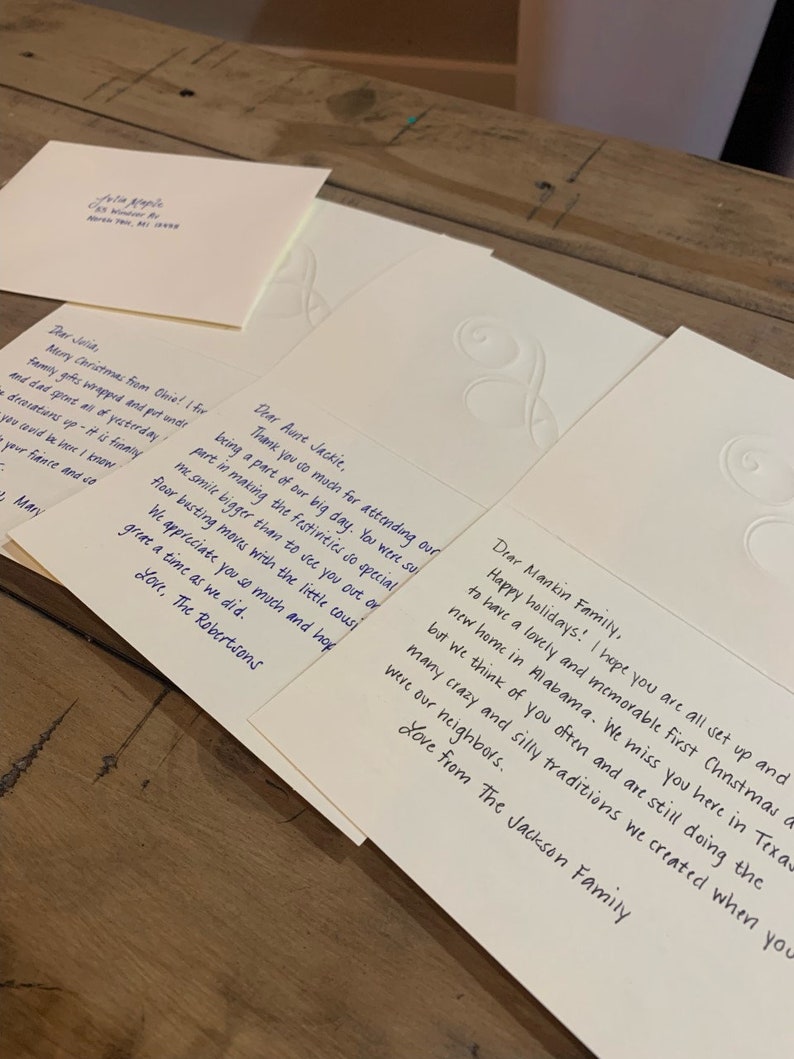 Julia Maple
Windsor Av
North Pole, MI
Dear Julia,
Merry Christmas from Ohio! I
family gifts wrapped and put
and dad spent all of yesterday
decorations up - it is finally
you could be here I know
your fiance and so
Mary
Dear Aunt Jackie,
Thank you so much for attending our
being a part of our big day. You were
part in making the festivities so special
me smile bigger than to see you out
floor busting moves with the little
We appreciate you so much and
great a time as we did.
Love, The Robertsons
Dear Mankin Family,
Happy holidays! I hope you are all set up and
to have a lovely and memorable first Christmas
new home in Alabama. We miss you here in Texas
but we think of you often and are still doing the
many crazy and silly traditions we created when you
were our neighbors.
Love from The Jackson Family